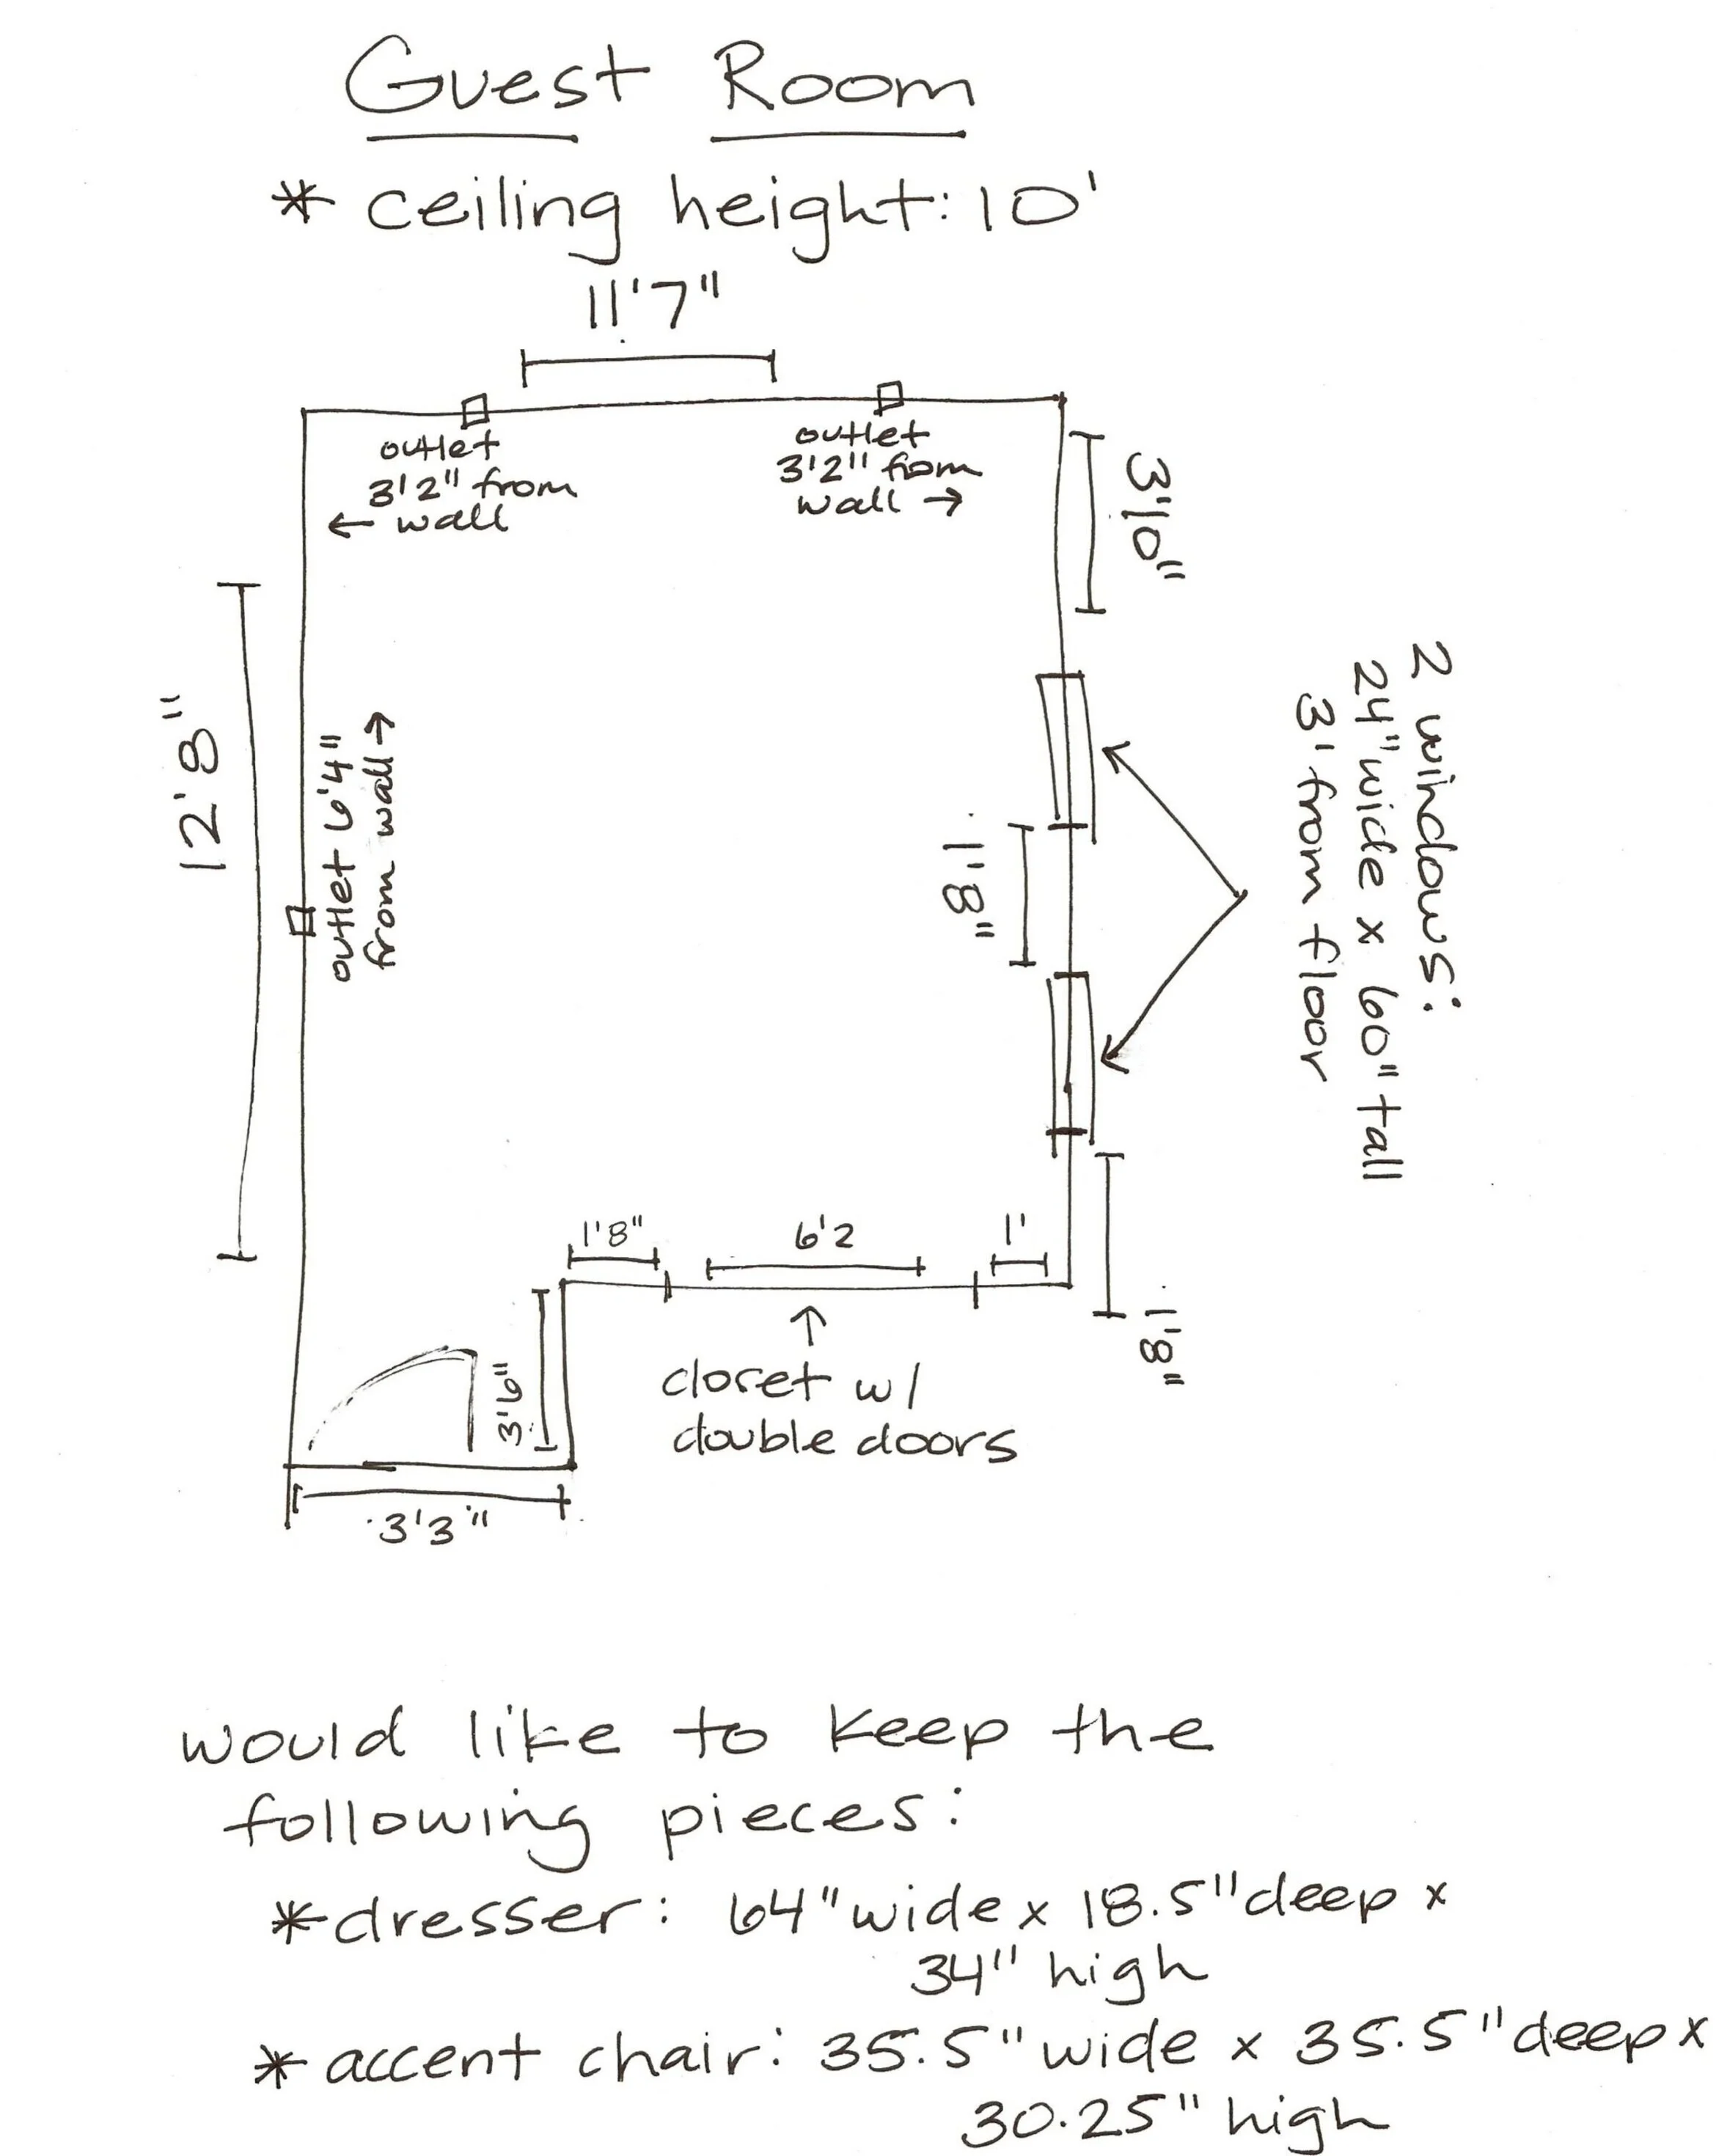 Guest Room
* ceiling height: 10'
11'7"
outlet
3'2" from
← wall
outlet
3'2" from
wall →
3'10"
12'8"
outlet 6'4"
from wall →
2 windows:
24" wide x 60" tall
3' from floor
1'8"
1'8"
6'2
1'
1'8"
closet w/
double doors
3'6"
3'3"
would like to keep the
following pieces:
*dresser: 64" wide x 18.5" deep x
34" high
* accent chair: 35.5" wide x 35.5" deep x
30.25" high